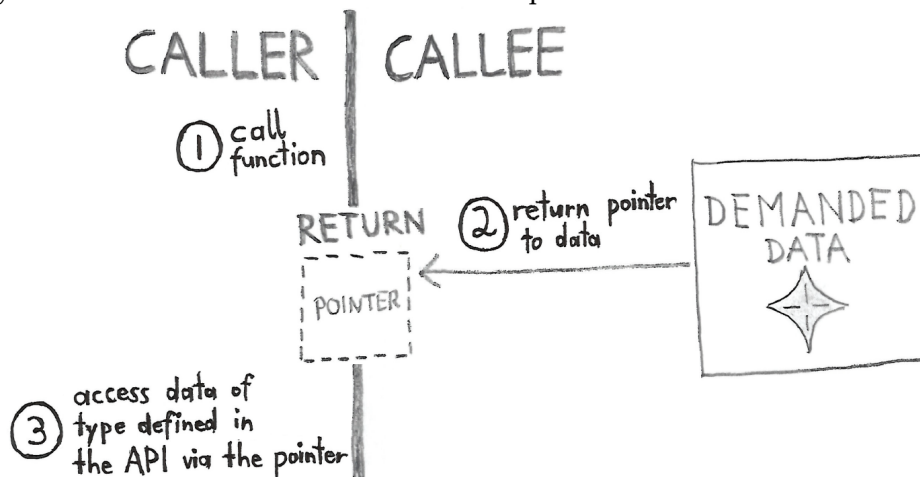 CALLER
CALLEE
1 call
function
RETURN
POINTER
2 return pointer
to data
DEMANDED
DATA
3 access data of
type defined in
the API via the pointer